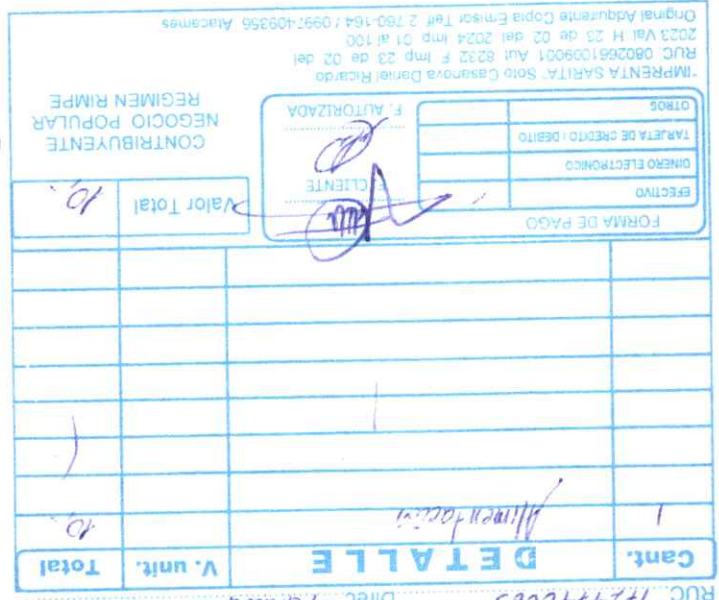 RUC Direc
Cant. DETALLE V. unit. Total
1 Alimentación 10,-
FORMA DE PAGO
EFECTIVO
DINERO ELECTRONICO
TARJETA DE CREDITO / DEBITO
OTROS
CLIENTE
F. AUTORIZADA
Valor Total 10,-
CONTRIBUYENTE
NEGOCIO POPULAR
REGIMEN RIMPE
"IMPRENTA SARITA" Soto Casanova Daniel Ricardo
RUC 0802661009001 Aut 8232 F Imp 23 de 02 del
2023 Val H 23 de 02 del 2024 Imp 01 al 100
Original Adquirente Copia Emisor Telf 2 760-164 / 0997409356 Atacames